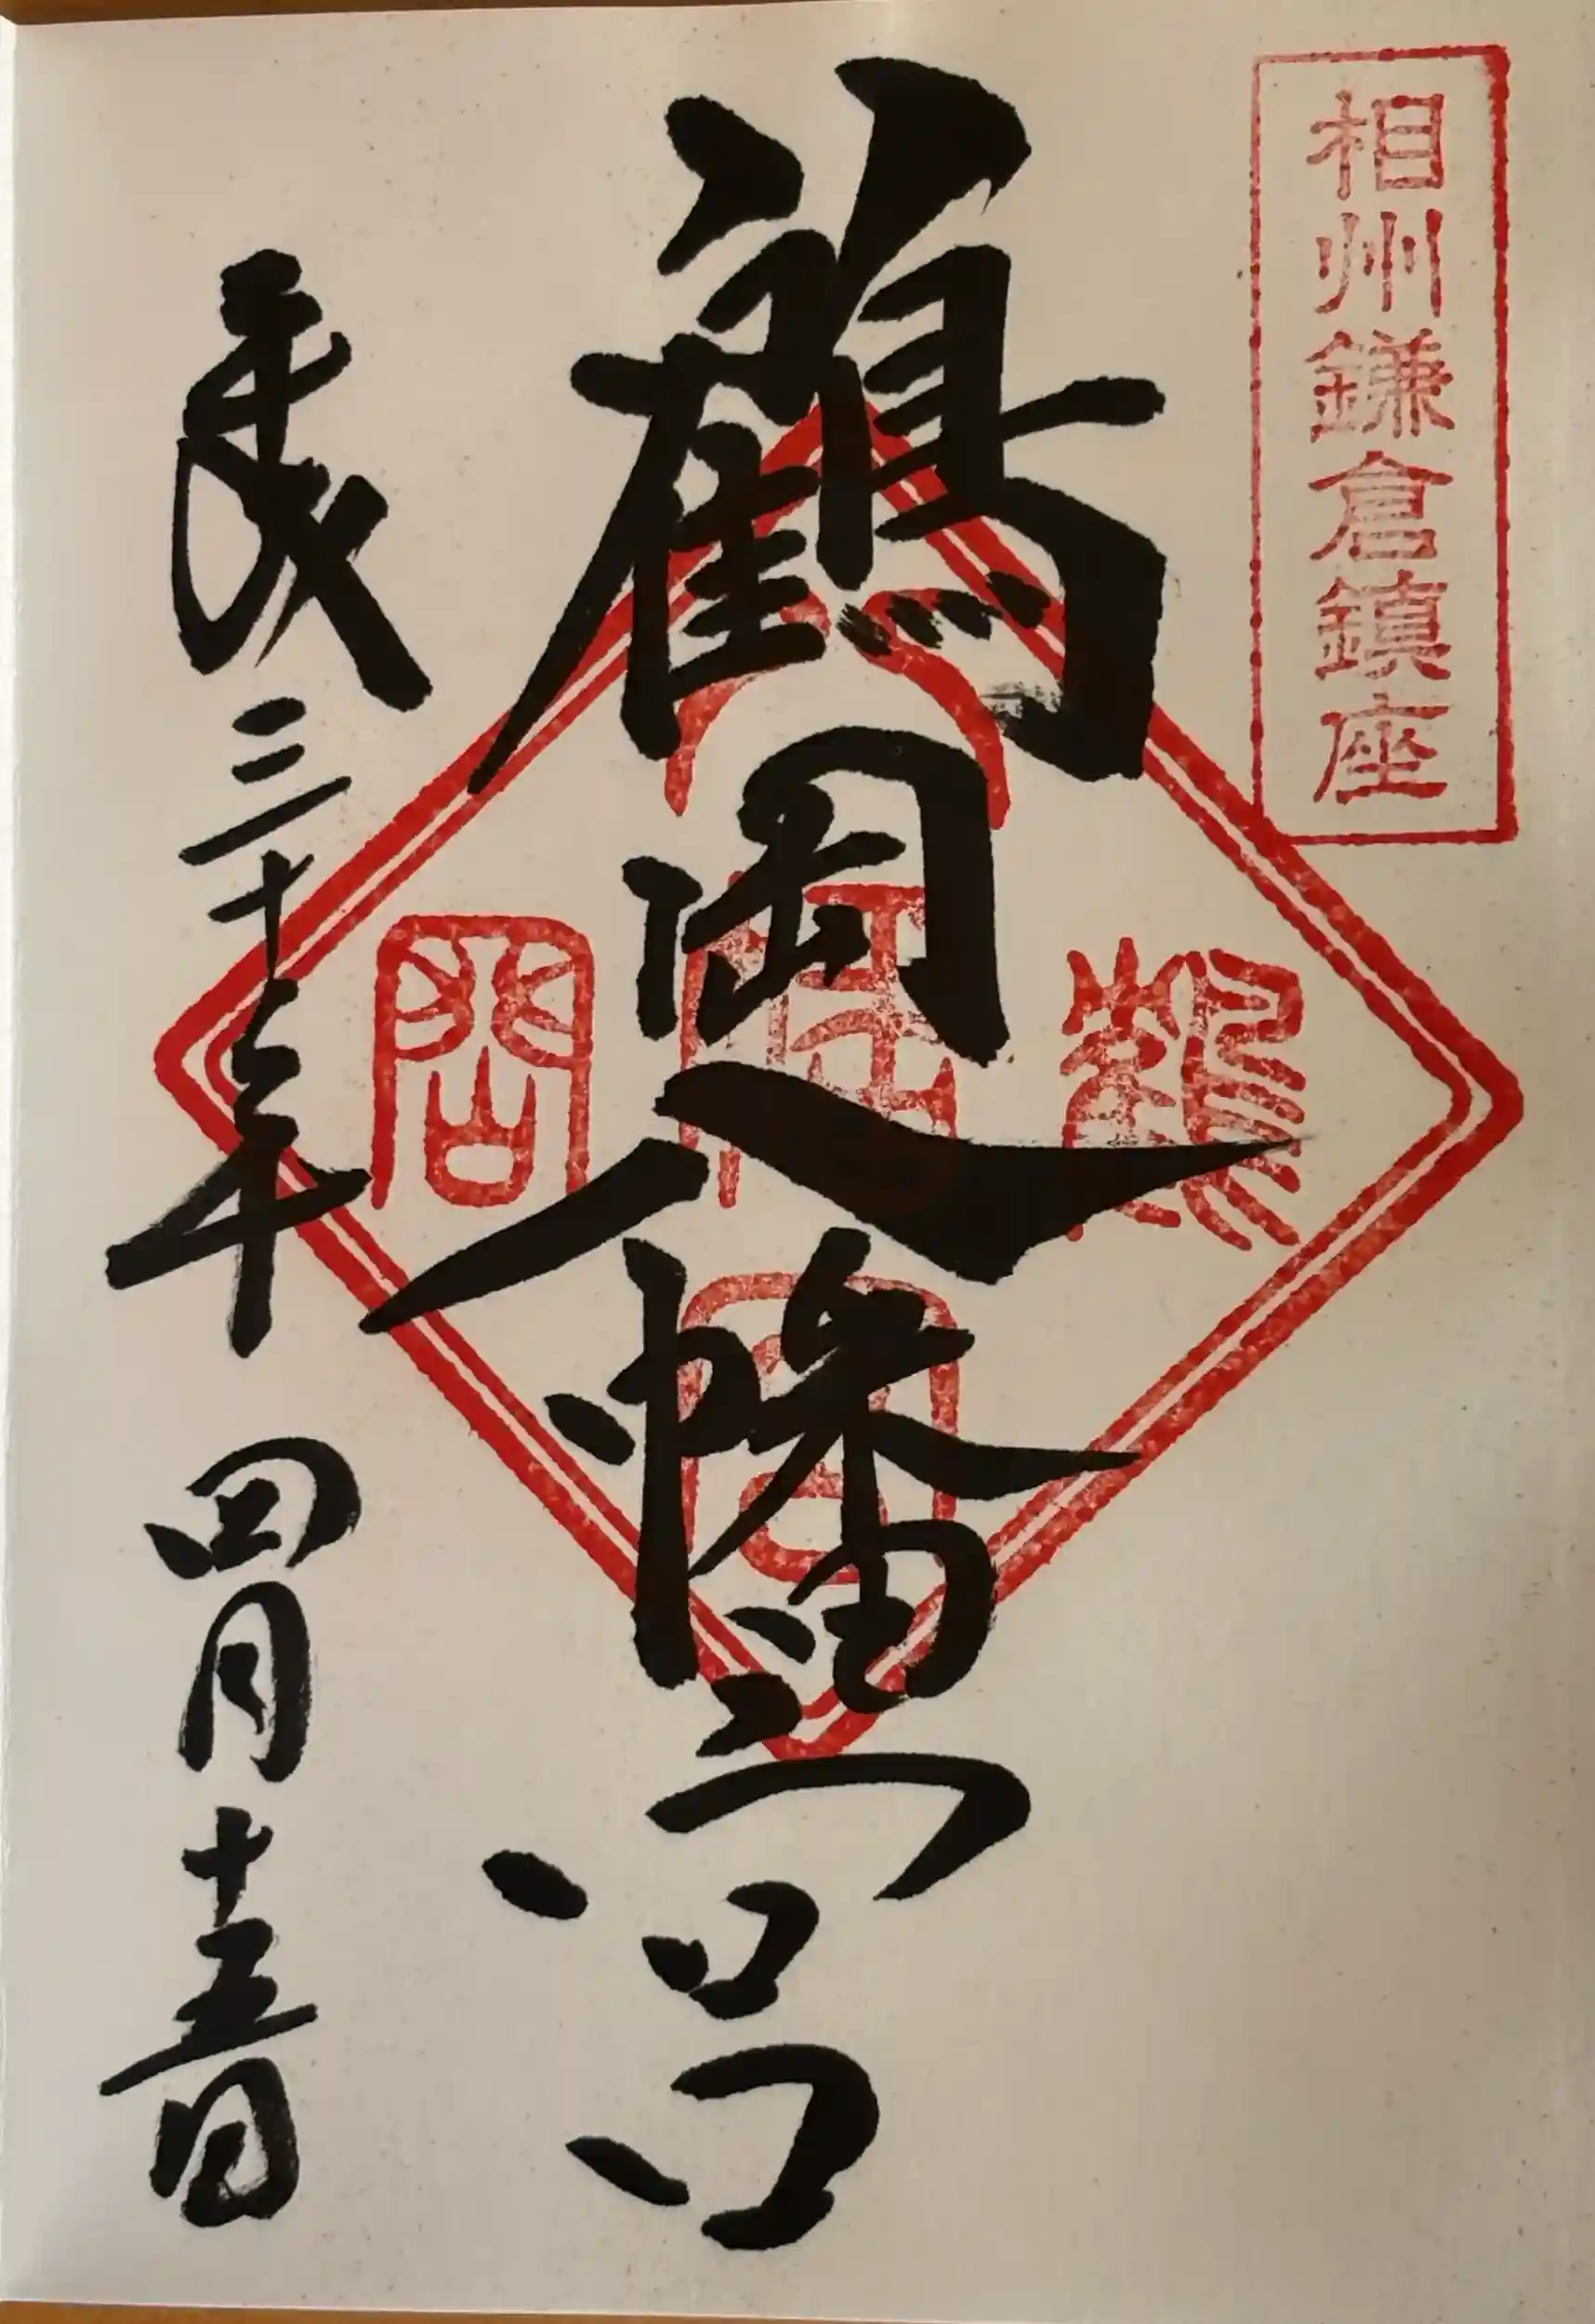 相州鎌倉鎮座
鶴岡八幡宮
鶴岡八幡宮
平成三十年四月十五日